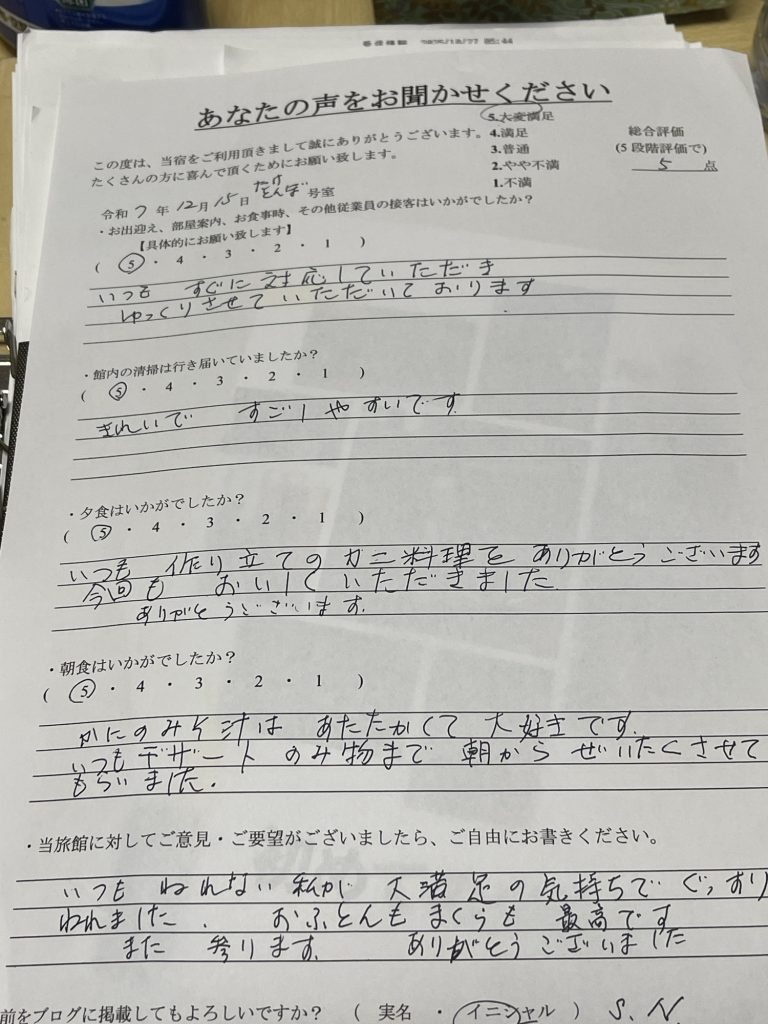 受信時刻 2025/12/27 05:44
あなたの声をお聞かせください
この度は、当宿をご利用頂きまして誠にありがとうございます。
たくさんの方に喜んで頂くためにお願い致します。
5.大変満足
4.満足
3.普通
2.やや不満
1.不満
総合評価
(5段階評価で)
5 点
令和 7 年 12 月 15 日 たけとんぼ 号室
・お出迎え、部屋案内、お食事時、その他従業員の接客はいかがでしたか?
【具体的にお願い致します】
( 5 ・ 4 ・ 3 ・ 2 ・ 1 )
いつも すぐに対応していただき
ゆっくりさせていただいております
・館内の清掃は行き届いていましたか?
( 5 ・ 4 ・ 3 ・ 2 ・ 1 )
きれいで すごしやすいです
・夕食はいかがでしたか?
( 5 ・ 4 ・ 3 ・ 2 ・ 1 )
いつも 作り立てのカニ料理を ありがとうございます
今回も おいしくいただきました
ありがとうございます。
・朝食はいかがでしたか?
( 5 ・ 4 ・ 3 ・ 2 ・ 1 )
かにのみそ汁は あたたかくて 大好きです。
いつもデザート のみ物まで 朝から ぜいたくさせて
もらいました。
・当旅館に対してご意見・ご要望がございましたら、ご自由にお書きください。
いつも ねれない私が 大満足の気持ちで ぐっすり
ねれました。 おふとんもまくらも 最高です
また 参ります。 ありがとうございました
前をブログに掲載してもよろしいですか? ( 実名 ・ イニシャル ) S.N.